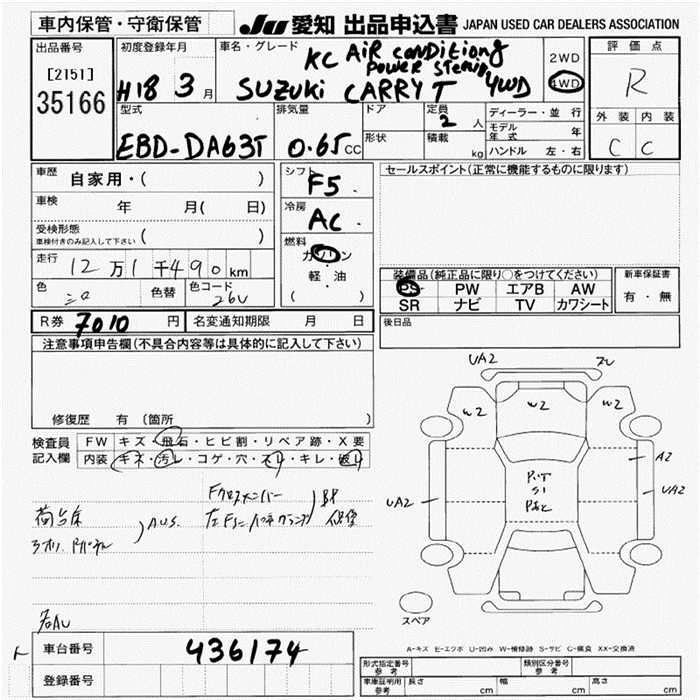 車内保管・守衛保管
JU 愛知 出品申込書 JAPAN USED CAR DEALERS ASSOCIATION
出品番号
[2151]
35166
初度登録年月
H18 3 月
車名・グレード
KC AIR conditiong
Power Stering
SUZUKI CARRY T 4WD
2WD
4WD
評価点
R
外装 内装
C C
型式
EBD-DA63T
排気量
0.65 CC
ドア
形状
定員
2 人
積載
kg
ディーラー・並行
モデル年式 年
ハンドル 左・右
車歴 自家用・( )
車検 年 月( 日)
受検形態
車検付きのみ記入して下さい ( )
走行 12万1千490 km
色 シロ 色替 色コード 26U
シフト
F5
冷房
AC
燃料
ガソリン
・
軽・油
( )
セールスポイント(正常に機能するものに限ります)
装備品(純正品に限り○をつけてください)
PS PW エアB AW
SR ナビ TV カワシート
新車保証書
有・無
R券 7010 円 名変通知期限 月 日
後日品
注意事項申告欄(不具合内容等は具体的に記入して下さい)
修復歴 有 (箇所 )
検査員記入欄
FW キズ・飛石・ヒビ割・リペア跡・X要
内装 キズ・汚レ・コゲ・穴・スレ・キレ・破レ
荷台床
AUS.
UA2
W2 W2 W2
A2
UA2
UA2
P.T
S1
スペア
A-キズ E-エクボ U-凹み W-補修跡 S-サビ C-腐食 XX-交換済
車台番号 436174
登録番号
形式指定番号 参考
類別区分番号 参考
車庫証明用 参考 長さ cm 幅 cm 高さ cm